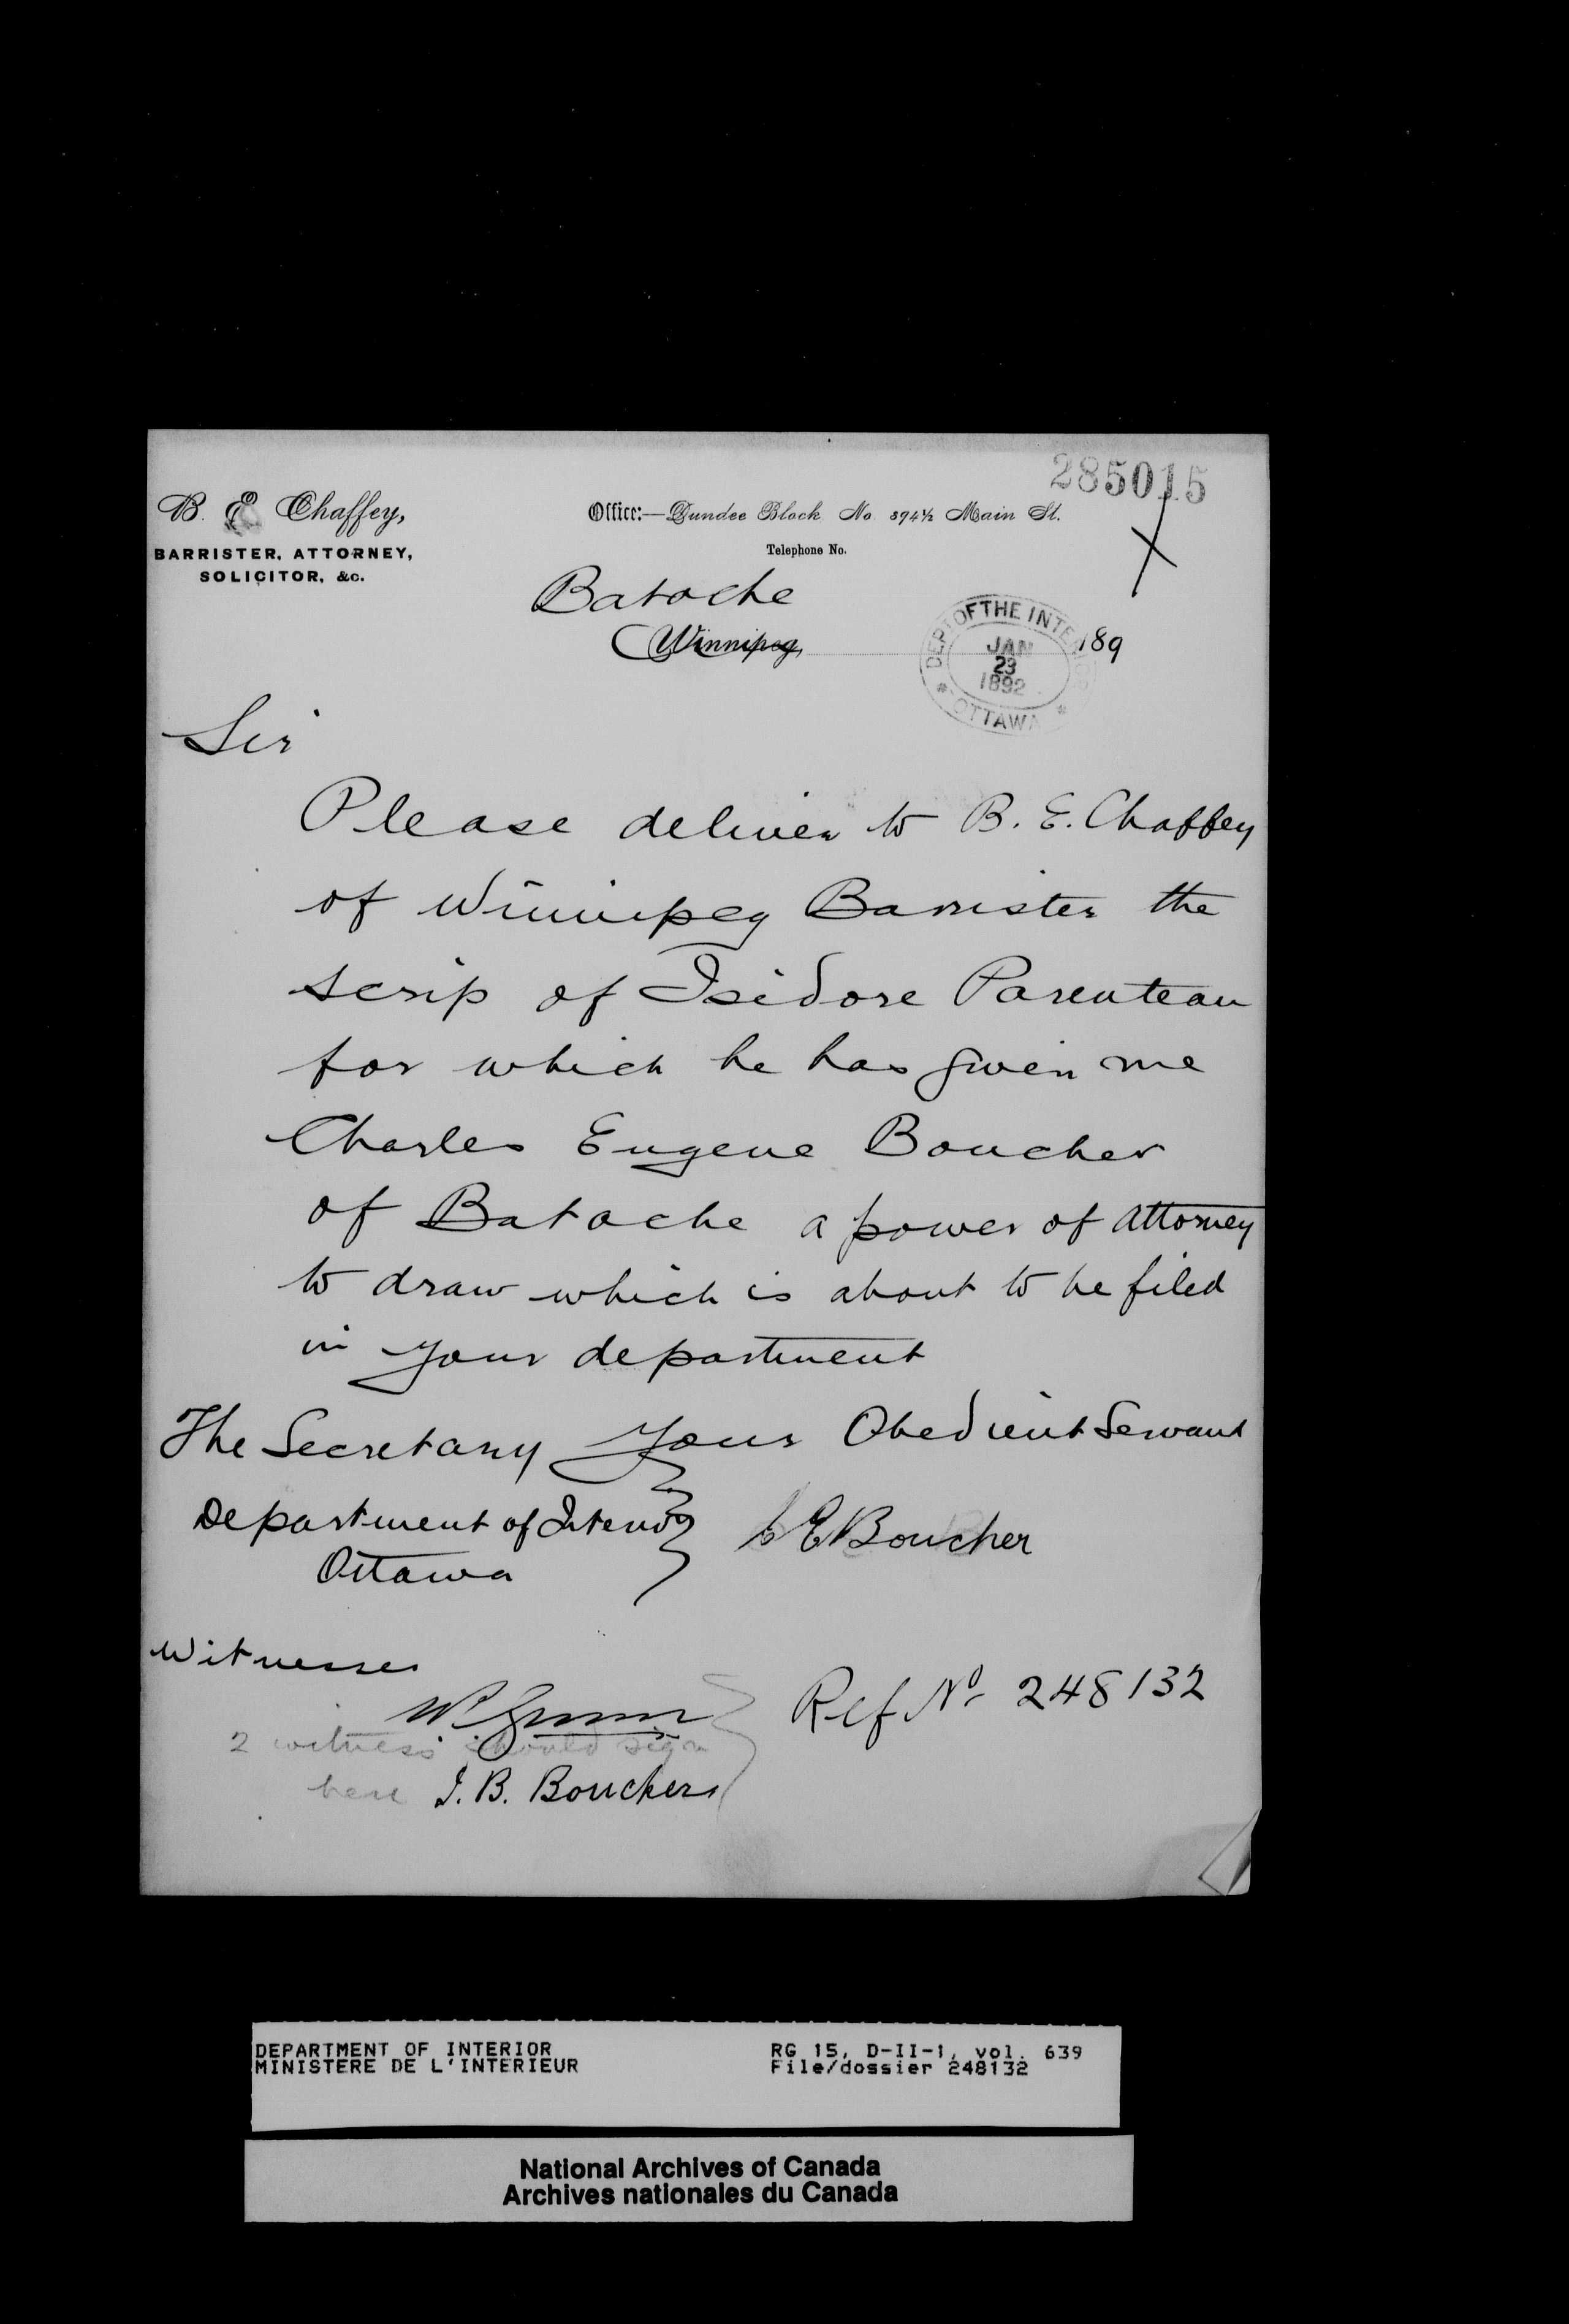 285015
B. E. Chaffey,
BARRISTER, ATTORNEY,
SOLICITOR, &c.
Office:—Dundee Block No 394½ Main St.
Telephone No.
Batoche
Winnipeg, 189
DEPT OF THE INTERIOR
JAN
23
1892
* OTTAWA *
Sir
Please deliver to B. E. Chaffey
of Winnipeg Barrister the
scrip of Isidore Parenteau
for which he has given me
Charles Eugene Boucher
of Batoche a power of attorney
to draw which is about to be filed
in your department
The Secretary Your Obedient Servant
Department of Interior
Ottawa
C E Boucher
Witnesses
2 witness should sign
here J. B. Boucher
Ref No. 248132
DEPARTMENT OF INTERIOR
MINISTERE DE L'INTERIEUR
RG 15, D-II-1, vol. 639
File/dossier 248132
National Archives of Canada
Archives nationales du Canada